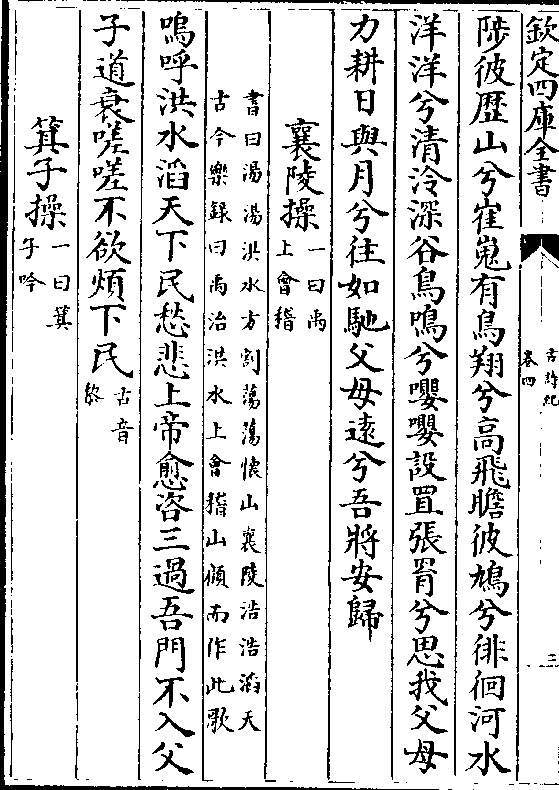 欽定四庫全書
古詩紀
卷四
三
陟彼歷山兮崔嵬有鳥翔兮高飛瞻彼鳩兮徘徊河水
洋洋兮清泠深谷鳥鳴兮嚶嚶設罝張罥兮思我父母
力耕日與月兮往如馳父母遠兮吾將安歸
襄陵操一曰禹
上會稽
書曰湯湯洪水方割蕩蕩懷山襄陵浩浩滔天
古今樂録曰禹治洪水上會稽山顧而作此歌
嗚呼洪水滔天下民愁悲上帝愈咨三過吾門不入父
子道衰嗟嗟不欲煩下民古音
箕子操一曰箕
子吟